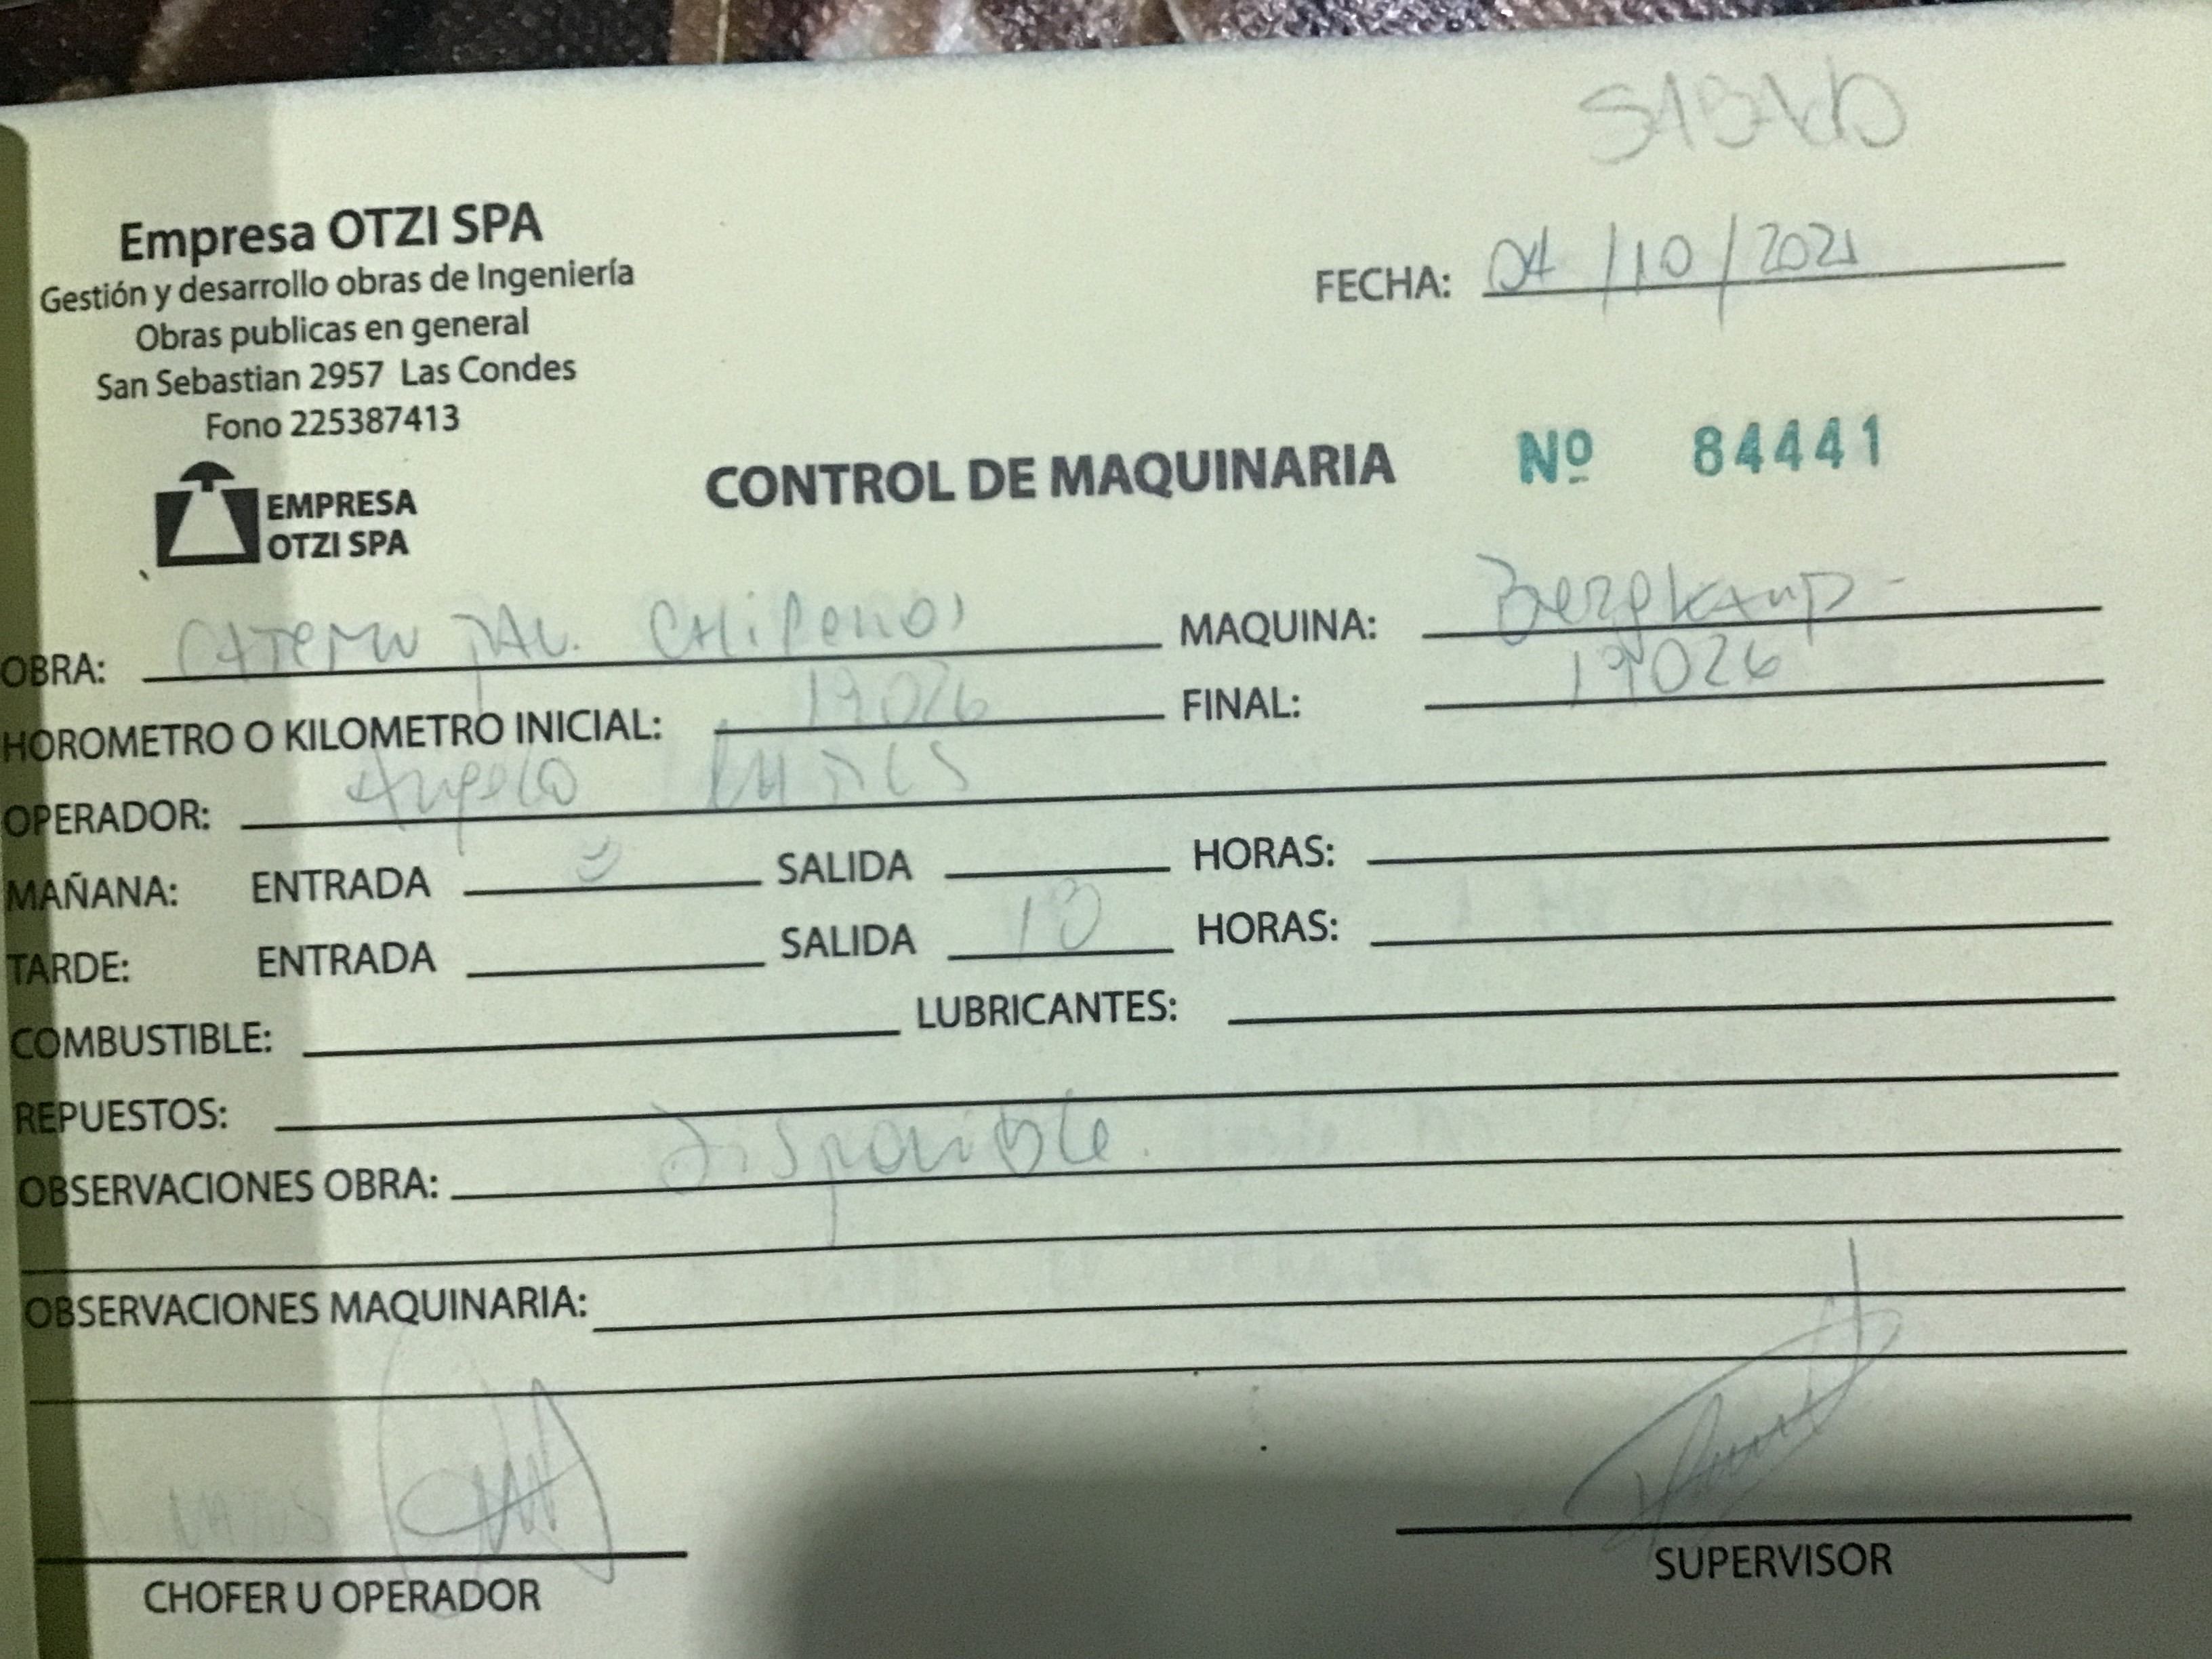 SABADO
Empresa OTZI SPA
Gestión y desarrollo obras de Ingeniería
Obras publicas en general
San Sebastian 2957 Las Condes
Fono 225387413
FECHA: 04/10/2021
EMPRESA
OTZI SPA
CONTROL DE MAQUINARIA Nº 84441
OBRA: CATEMU MAQUINA: Bergkamp-
HOROMETRO O KILOMETRO INICIAL: 19026 FINAL: 19026
OPERADOR: Angelo
MAÑANA: ENTRADA SALIDA HORAS:
TARDE: ENTRADA SALIDA HORAS:
COMBUSTIBLE: LUBRICANTES:
REPUESTOS:
OBSERVACIONES OBRA: disponible.
OBSERVACIONES MAQUINARIA:
CHOFER U OPERADOR
SUPERVISOR